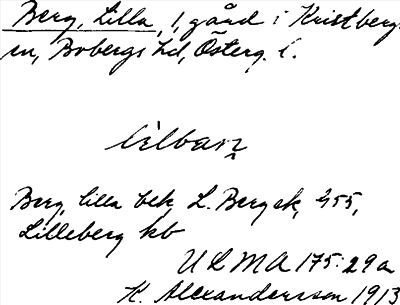 Berg, Lilla, 1, gård i Kristbergs
sn, Bobergs hd, Österg. l.
lilban
Berg, lilla bek L. Berg ek, 455,
Lilleberg kb
ULMA 175:29a
K. Alexandersson 1913